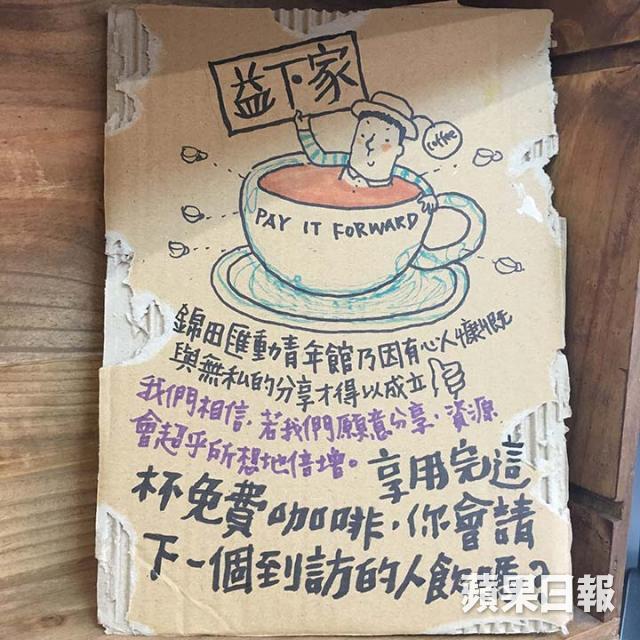 益下家
coffee
PAY IT FORWARD
錦田匯動青年館乃因有心人慷慨
與無私的分享才得以成立
我們相信，若我們願意分享，資源
會超乎所想地倍增。享用完這
杯免費咖啡，你會請
下一個到訪的人飲嗎？
蘋果日報